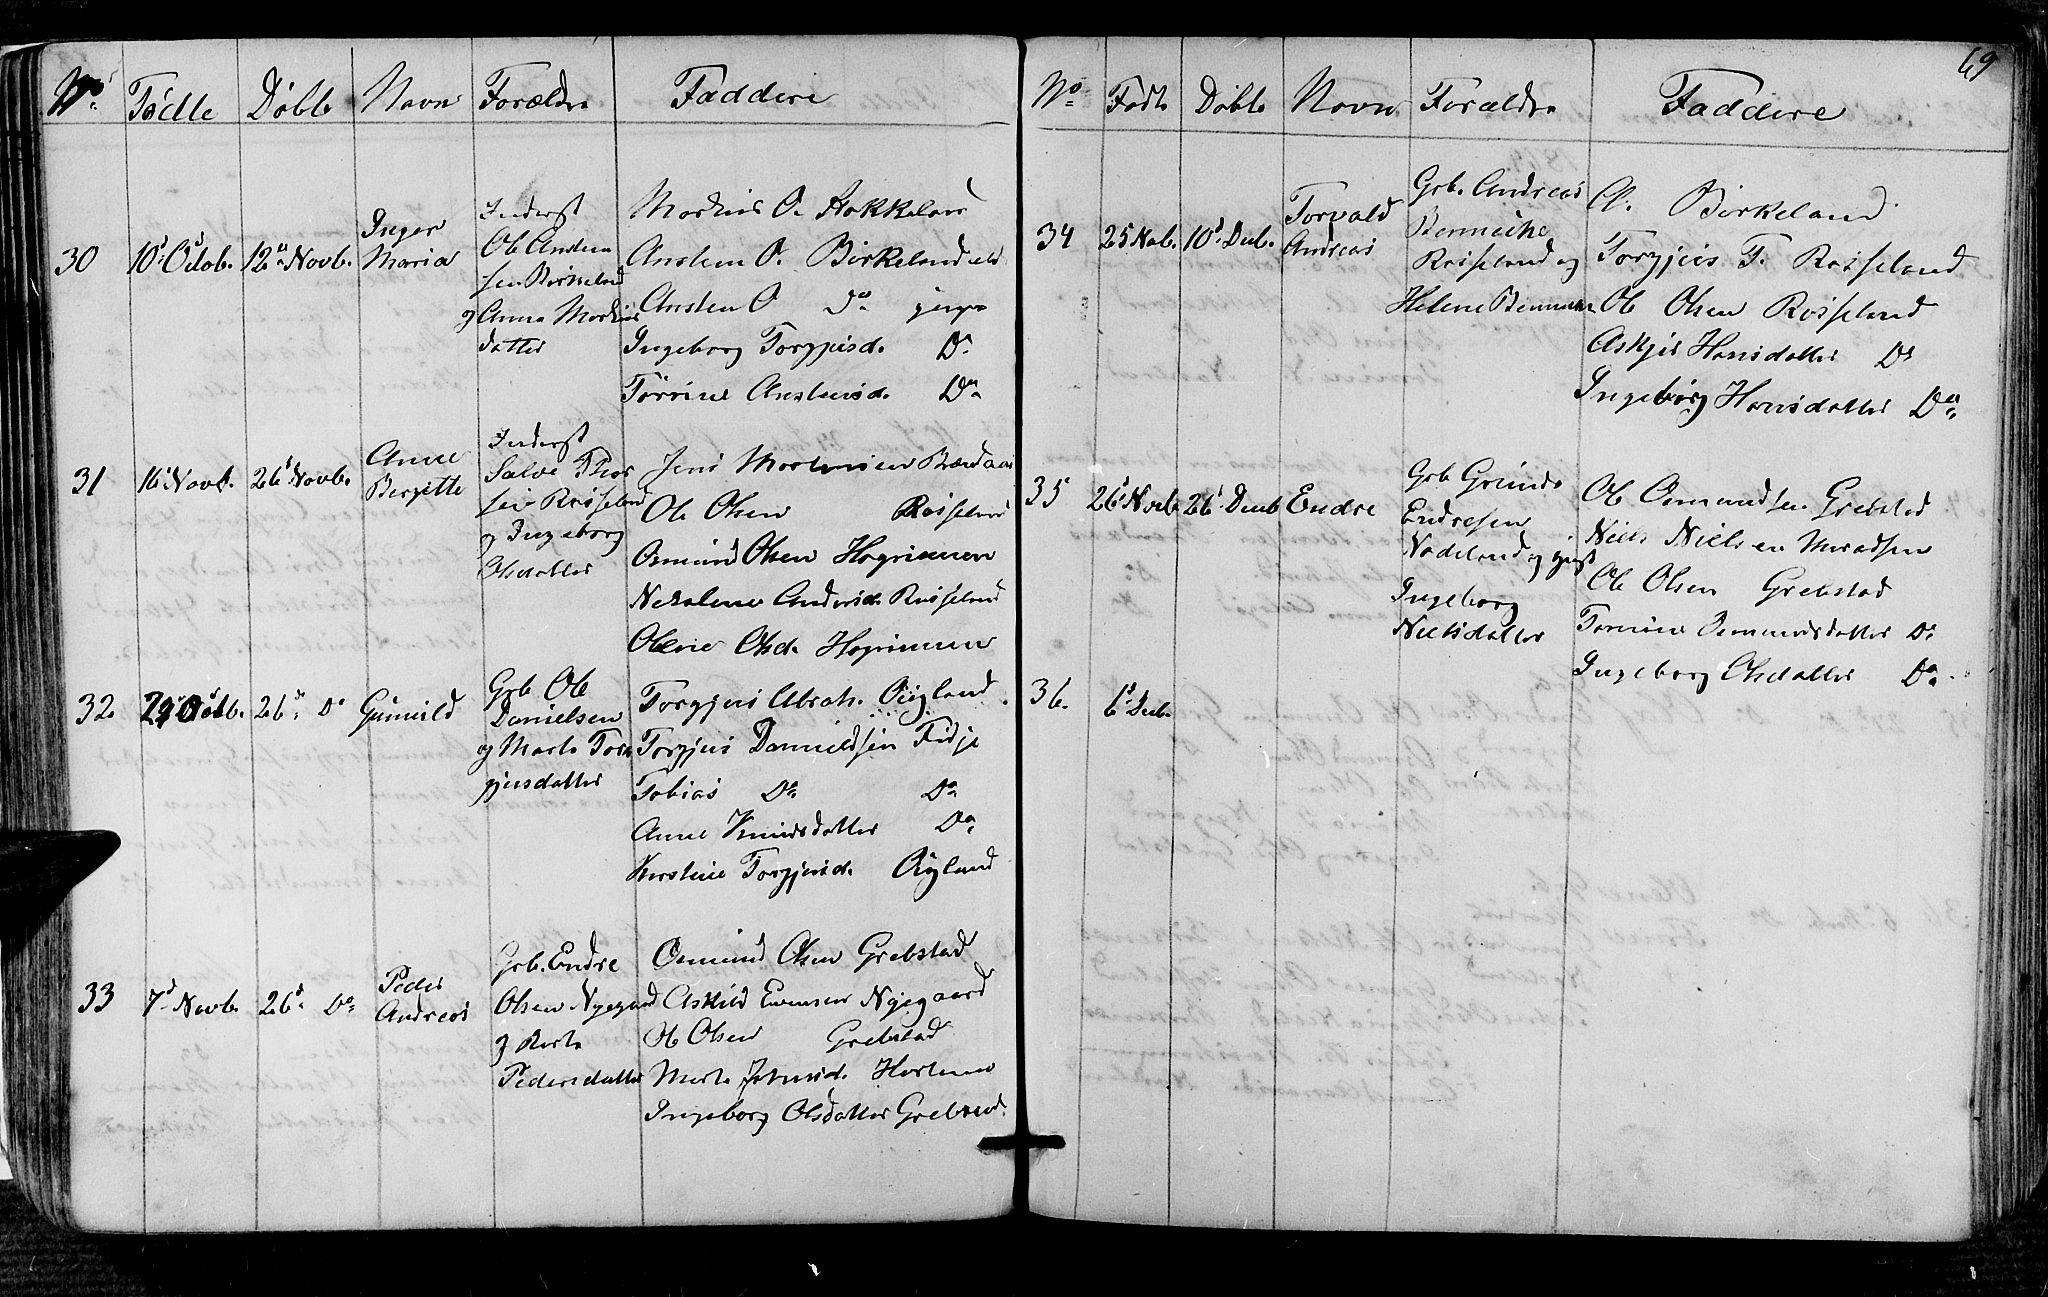 No. Fødte Døbte Navn Forældre Faddere
30 10d Octob. 12te Novb. Inger Maria
Inderst
Ole Andersen Birkeland
og Anna Markus
datter
Markus O. Hokkeland
Ansten O. Birkeland eld
Ansten O. Do yngre
Ingeborg Torgjusd. Do
Torine Anstensd. Do
31 16 Novb. 26d Novb. Anne Bergitte
Inderst
Salve Thor
sen Røiseland
og Ingeborg
Olsdatter
Jens Mortensen
Ole Olsen Røiseland
Osmund Olsen Hogrimmen
Andersd. Røiseland
Olene Olsd. Hogrimmen
32. 29 Octb. 26d. Do Gunvild
Grb. Ole
Danielsen
og Marte Tor
gjusdatter
Torgjus Abrah. Øigland
Torgjus Danieldsen Fidje
Tobias Do Do
Anne Knudsdatter Do
Kirstine Torgjusd. Øigland
33 7d Novb. 26d. Do Peder Andreas
Grb. Endre
Olsen Nygaard
og Berte
Pedersdatter
Osmund Olsen Grebstad
Askild Evensen Nyegaard
Ole Olsen Grebstad
Ingeborg Olsdatter Grebstad.
69
No. Født Døbte Navn Forældre Faddere
34 25 Nob. 10d. Decb. Torvald Andreas
Grb. Andreas
Benniche
Røiseland og
Helene
O. Birkeland
Torgjus T. Røiseland
Ole Olsen Røiseland
Askjer Hansdatter Do
Ingeborg Hansdatter Do
35 26d Novb. 26d Decb Endre
Grb
Endresen
Nodeland og
Ingeborg
Nielsdatter
Ole Osmundsen Grebstad
Niels Nielsen
Ole Olsen Grebstad
Tomine Osmundsdatter Do
Ingeborg Olsdatter Do
36. 6d Decb.